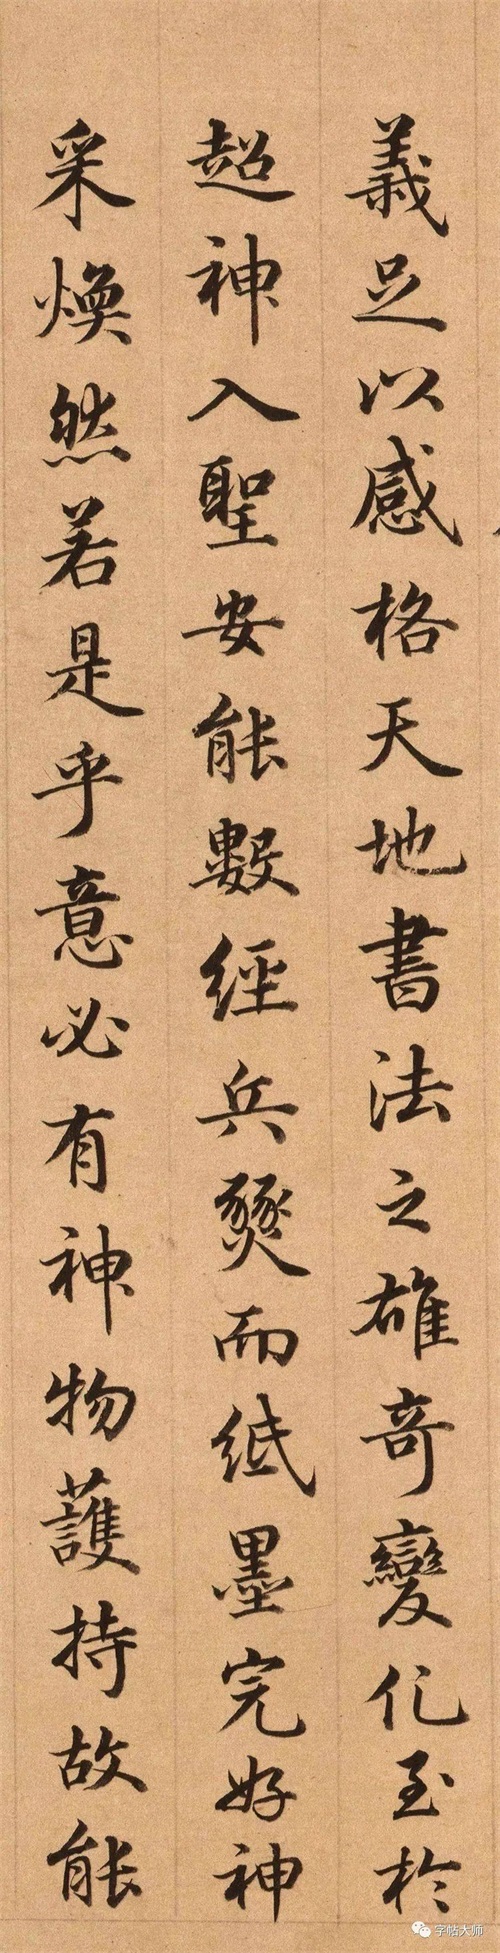 義足以感格天地書法之雄奇變化至於
超神入聖安能數經兵燹而紙墨完好神
采煥然若是乎意必有神物護持故能
字帖大师